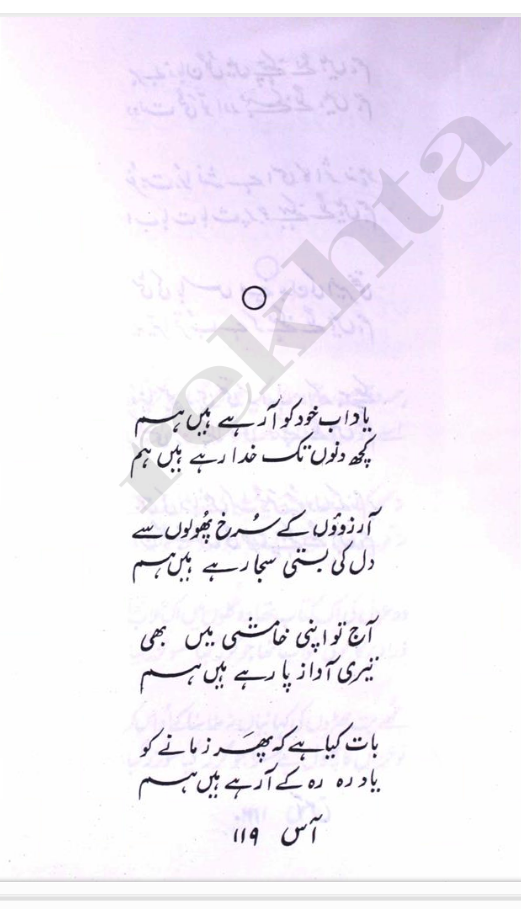 یاد اب خود کو آ رہے ہیں ہم
کچھ دنوں تک خدا رہے ہیں ہم
آرزوؤں کے سرخ پھولوں سے
دل کی بستی سجا رہے ہیں ہم
آج تو اپنی خامشی میں بھی
تیری آواز پا رہے ہیں ہم
بات کیا ہے کہ پھر زمانے کو
یاد رہ رہ کے آ رہے ہیں ہم
آس ۱۱۹
rekhta